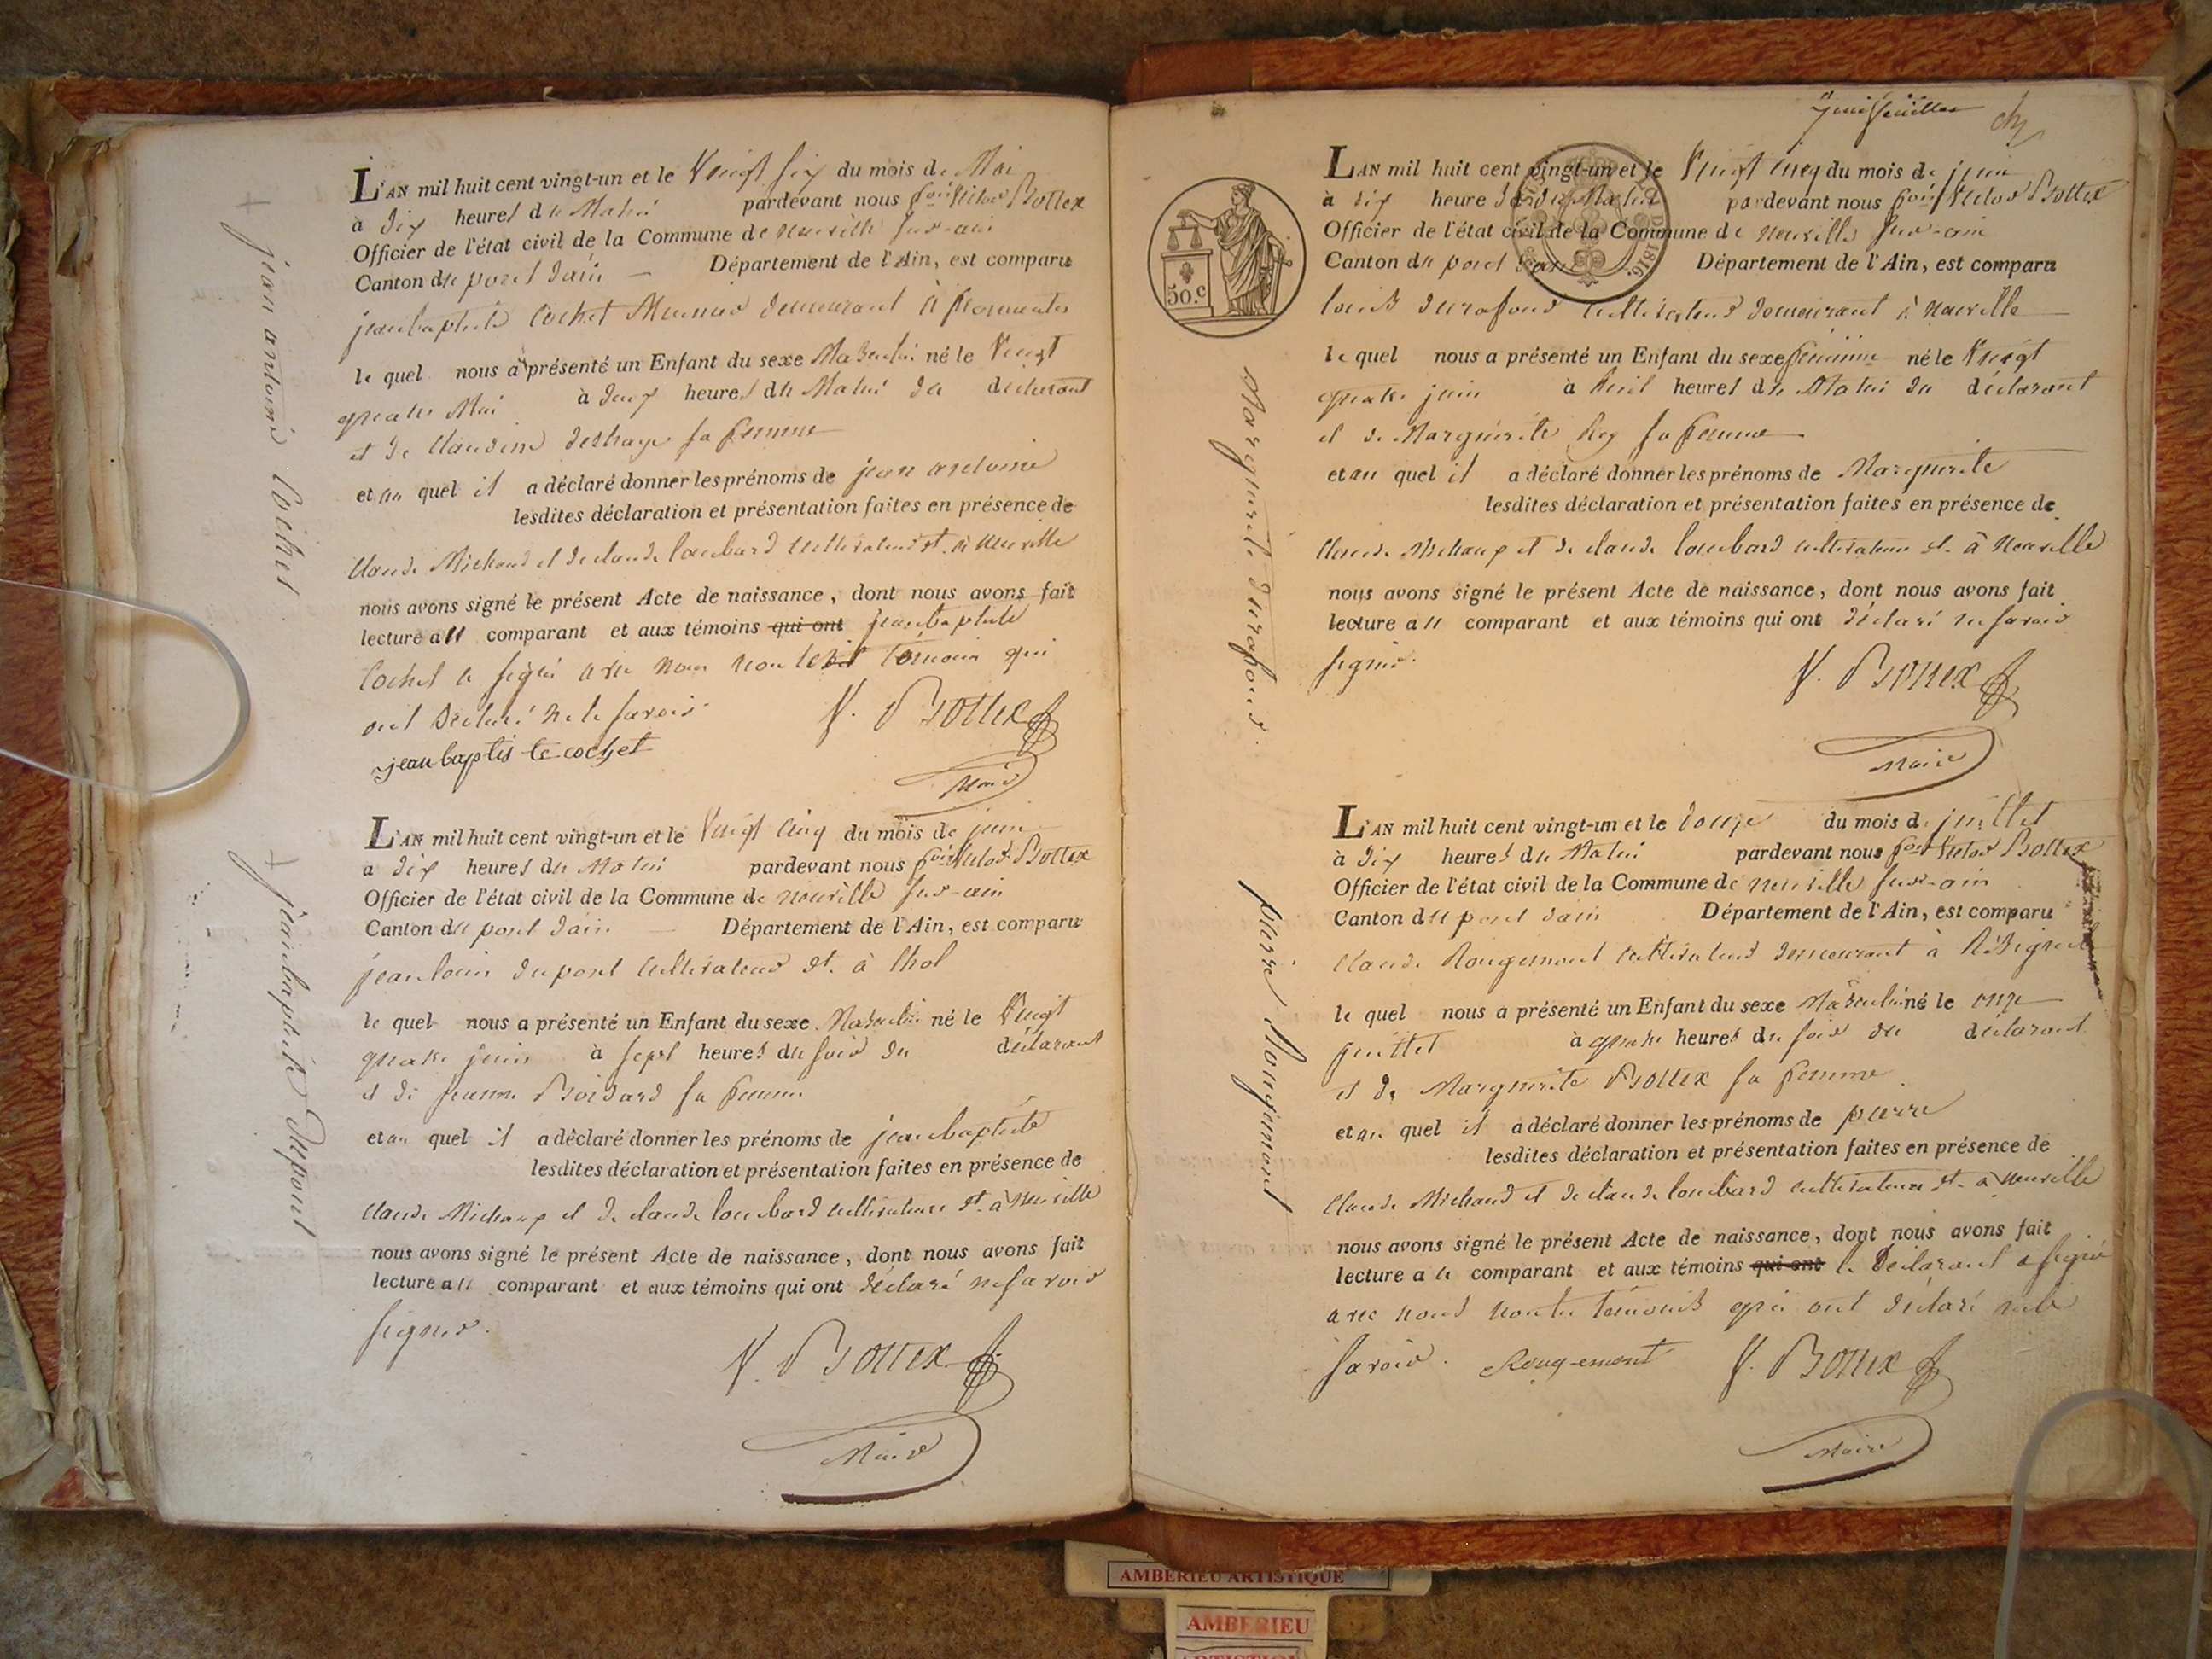 L'AN mil huit cent vingt-un et le Vingt six du mois de Mai
à dix heures du Matin pardevant nous Victor Bottex
Officier de l'état civil de la Commune de neuville sur-ain
Canton du pont d'ain — Département de l'Ain, est comparu
jean baptiste Cochet Meunier demeurant à
le quel nous a présenté un Enfant du sexe Masculin né le Vingt
quatre Mai à deux heures du Matin du déclarant
et de Claudine sa femme
et au quel il a déclaré donner les prénoms de jean antoine
lesdites déclaration et présentation faites en présence de
Claude Michaud et de claude lombard cultivateurs dt. à neuville
nous avons signé le présent Acte de naissance, dont nous avons fait
lecture au comparant et aux témoins qui ont jean baptiste
Cochet a signé avec nous non témoin qui
ont déclaré ne le savoir
V. Bottex
jean baptis te cochet
Maire
jean antoine Cochet
L'AN mil huit cent vingt-un et le Vingt cinq du mois de juin
à dix heures du Matin pardevant nous Victor Bottex
Officier de l'état civil de la Commune de neuville sur-ain
Canton du pont d'ain — Département de l'Ain, est comparu
jean louis dupont cultivateur dt. à thol
le quel nous a présenté un Enfant du sexe Masculin né le Vingt
quatre juin à sept heures du soir du déclarant
et de jeanne Boisard sa femme
et au quel il a déclaré donner les prénoms de jean baptiste
lesdites déclaration et présentation faites en présence de
Claude Michaux et de claude lombard cultivateurs dt. à neuville
nous avons signé le présent Acte de naissance, dont nous avons fait
lecture au comparant et aux témoins qui ont déclaré ne savoir
signer.
V. Bottex
Maire
jean baptiste Dupont
L'AN mil huit cent vingt-un et le Vingt cinq du mois de juin
à dix heure du Matin pardevant nous Victor Bottex
Officier de l'état civil de la Commune de neuville sur-ain
Canton du pont d'ain Département de l'Ain, est comparu
1816.
50.c
louis durafour cultivateur demeurant à neuville
le quel nous a présenté un Enfant du sexe feminin né le Vingt
quatre juin à huit heures du Matin du déclarant
et de Marguerite Rey sa femme
et au quel il a déclaré donner les prénoms de Marguerite
lesdites déclaration et présentation faites en présence de
Claude Michaux et de claude lombard cultivateurs dt. à Neuville
nous avons signé le présent Acte de naissance, dont nous avons fait
lecture au comparant et aux témoins qui ont déclaré ne savoir
signer.
V. Bottex
Maire
Marguerite durafour.
L'AN mil huit cent vingt-un et le douze du mois de juillet
à dix heures du Matin pardevant nous Victor Bottex
Officier de l'état civil de la Commune de neuville sur-ain
Canton du pont d'ain Département de l'Ain, est comparu
Claude Rougemont cultivateur demeurant à
le quel nous a présenté un Enfant du sexe Masculin né le onze
juillet à quatre heures du soir du déclarant
et de Marguerite Bottex sa femme
et au quel il a déclaré donner les prénoms de pierre
lesdites déclaration et présentation faites en présence de
Claude Michaud et de claude lombard cultivateurs dt. à neuville
nous avons signé le présent Acte de naissance, dont nous avons fait
lecture au comparant et aux témoins qui ont le déclarant a signé
avec nous non les témoins qui ont déclaré ne le
savoir. Rougemont V. Bottex
Maire
pierre Rougemont
AMBERIEU ARTISTIQUE
AMBERIEU